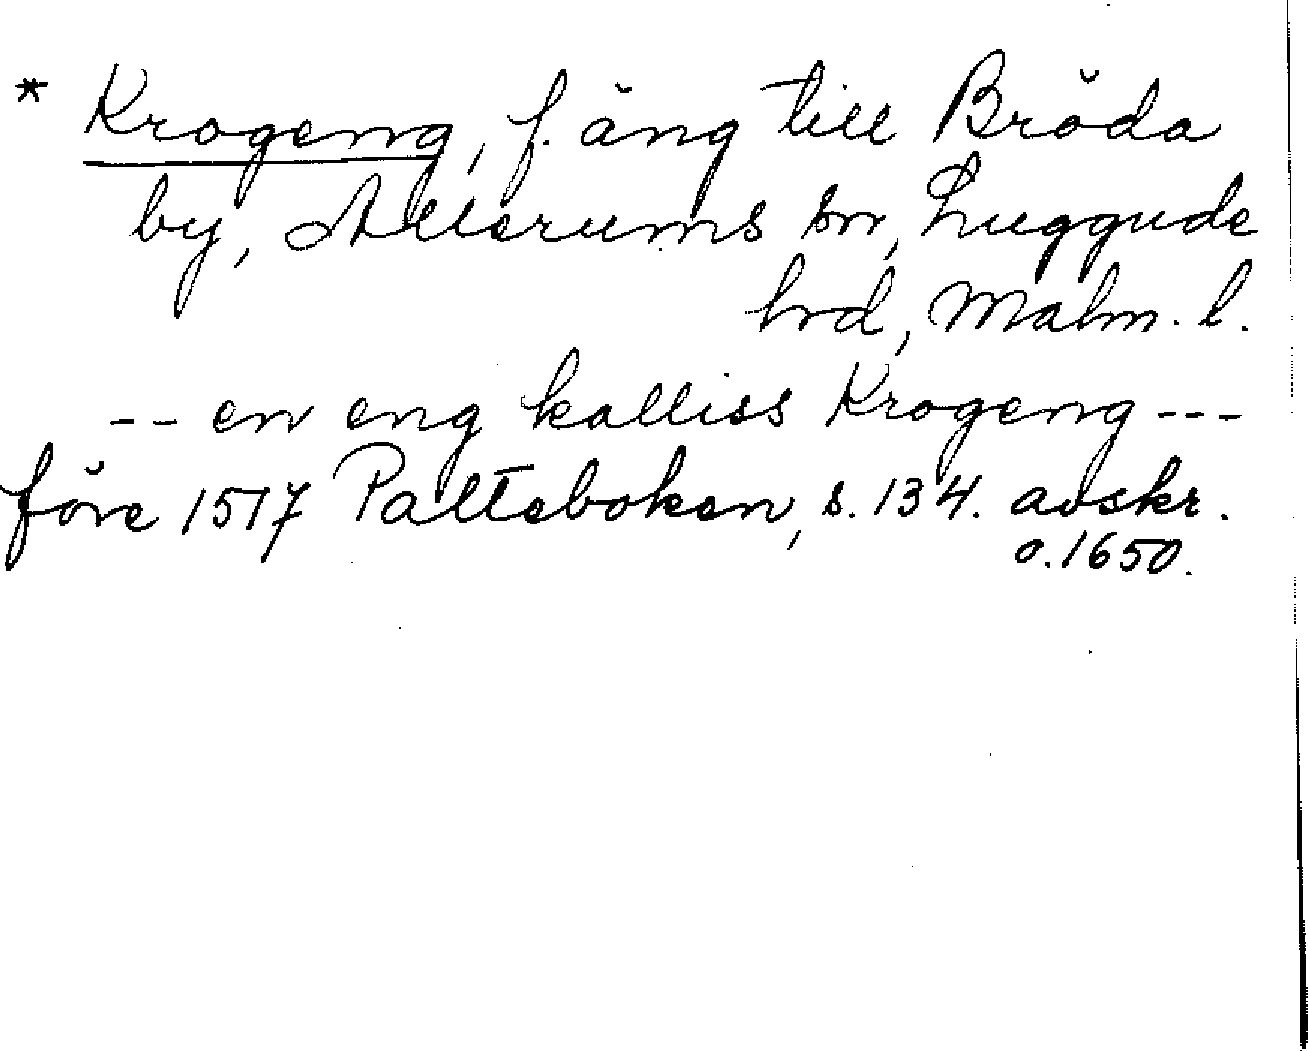 * Krogeng, f. äng till Bröda
by, Allerums sn, Luggude
hrd, Malm. l.
-- en eng kalliss Krogeng ---
före 1517 Palteboken, s. 134. avskr.
o. 1650.